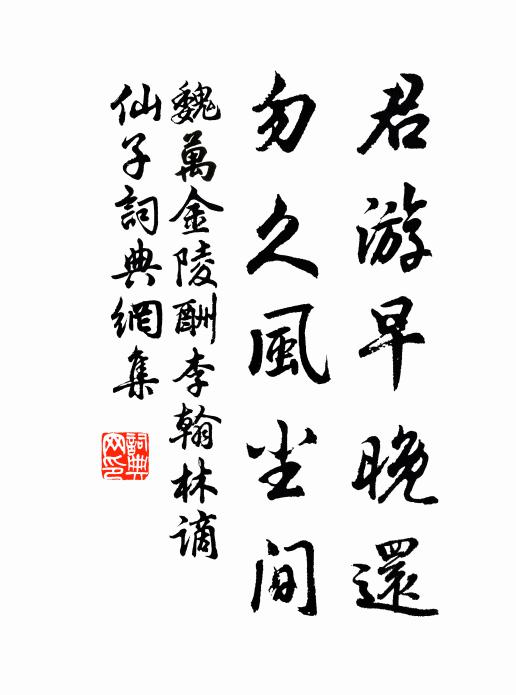 君游早晚還
勿久風尘間
魏萬金陵酬李翰林谪
仙子詞典網集
詞典网印